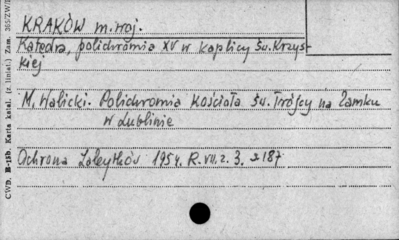 KRAKÓW m. woj.
Katedra, polichromia XV w kaplicy Św. Krzys-
kiej
M. Walicki. Polichromia Kościoła Św. Trójcy na Zamku
w Lublinie
Ochrona Zabytków 1954. R. VII. z. 3. s 187
CWD. B-11b. Karta katal. (z liniat.) Zam. 305/ZW/